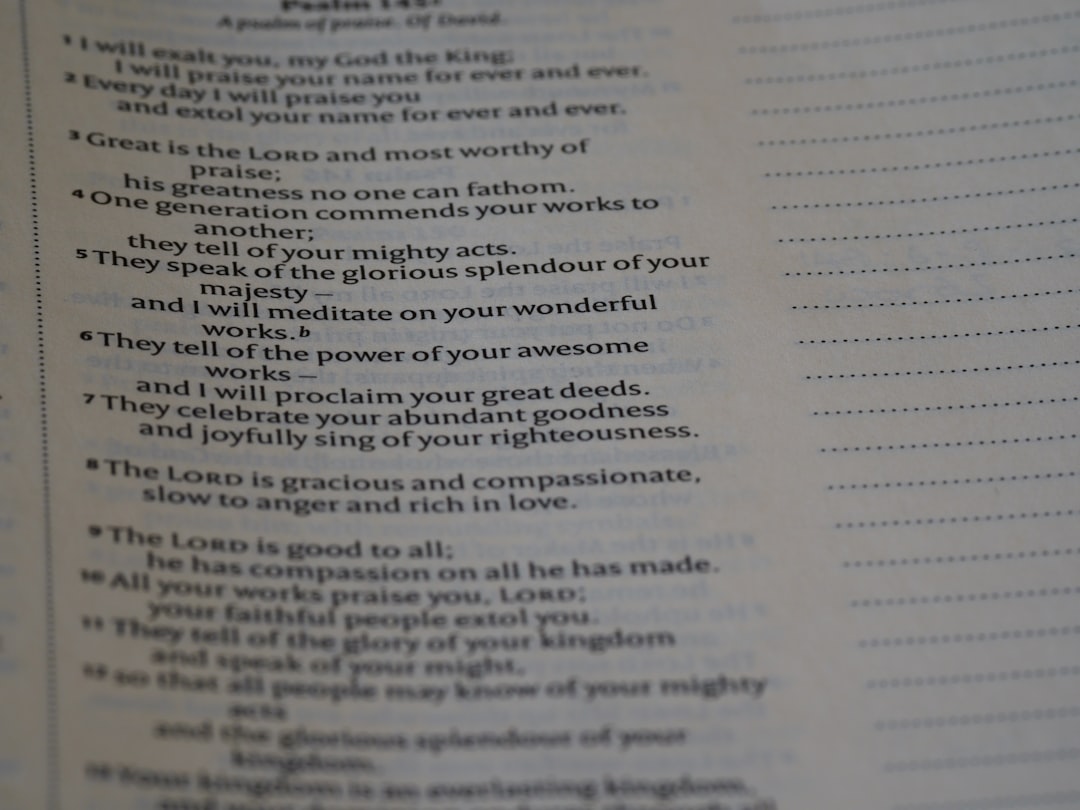 Psalm 145
A psalm of praise. Of David.
1 I will exalt you, my God the King;
I will praise your name for ever and ever.
2 Every day I will praise you
and extol your name for ever and ever.
3 Great is the LORD and most worthy of
praise;
his greatness no one can fathom.
4 One generation commends your works to
another;
they tell of your mighty acts.
5 They speak of the glorious splendour of your
majesty —
and I will meditate on your wonderful
works.b
6 They tell of the power of your awesome
works —
and I will proclaim your great deeds.
7 They celebrate your abundant goodness
and joyfully sing of your righteousness.
8 The LORD is gracious and compassionate,
slow to anger and rich in love.
9 The LORD is good to all;
he has compassion on all he has made.
10 All your works praise you, LORD;
your faithful people extol you.
11 They tell of the glory of your kingdom
and speak of your might,
12 so that all people may know of your mighty
acts
and the glorious splendour of your
kingdom.
13 Your kingdom is an everlasting kingdom,